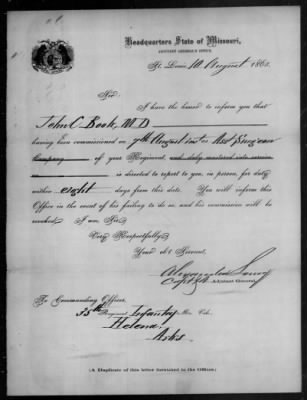 Headquarters State of Missouri,
ADJUTANT GENERAL'S OFFICE,
St. Louis, 10 August 1863
Sir:
I have the honor to inform you that
John C. Book, M D
having been commissioned on 7th August inst as Asst Surgeon
Company of your Regiment, and duly mustered into service
is directed to report to you, in person, for duty
within eight days from this date. You will inform this
Office in the event of his failing to do so, and his commission will be
revoked. I am, Sir,
Very Respectfully,
Your ob't Servant,
Adjutant General
To Commanding Officer,
33th Regiment Infantry Mo. Vols.
Helena
Arks
(A Duplicate of this letter furnished to the Officer.)